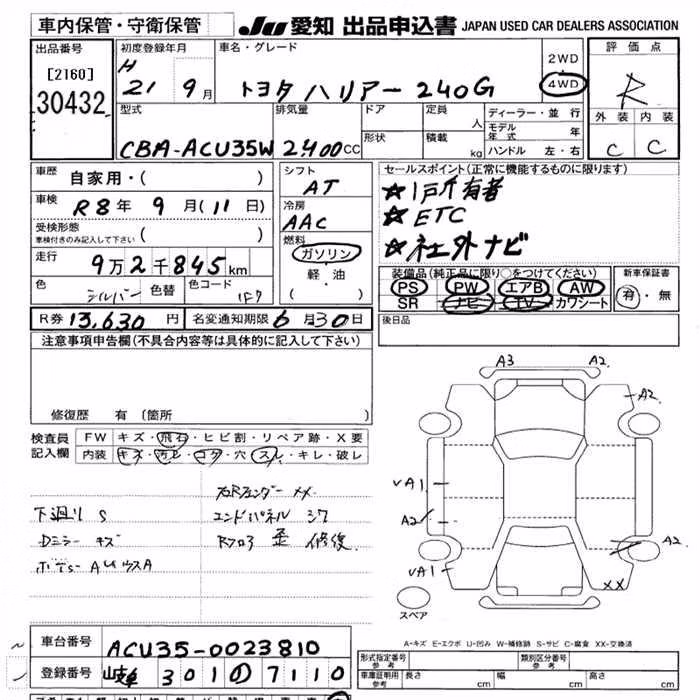 車内保管・守衛保管
JU 愛知 出品申込書 JAPAN USED CAR DEALERS ASSOCIATION
出品番号
[2160]
30432
初度登録年月
H
21 9月
車名・グレード
トヨタ ハリアー 240G
2WD
4WD
評価点
R
外装 内装
C C
型式
CBA-ACU35W
排気量
2400cc
ドア
形状
定員
人
積載
kg
ディーラー・並行
モデル年式 年
ハンドル 左・右
車歴
自家用・( )
車検
R8年 9月(11日)
受検形態
車検付きのみ記入して下さい ( )
走行
9万2千845km
色
シルバー
色替
色コード
1F7
シフト
AT
冷房
AAC
燃料
ガソリン
軽・油
( )
セールスポイント(正常に機能するものに限ります)
★1戸所有者
★ETC
★社外ナビ
装備品(純正品に限り○をつけてください)
PS PW エアB AW
SR ナビ TV カワシート
新車保証書
有・無
R券 13,630円 名変通知期限 6月30日
後日品
注意事項申告欄(不具合内容等は具体的に記入して下さい)
修復歴 有 〔箇所 〕
検査員
記入欄
FW キズ・飛石・ヒビ割・リペア跡・X要
内装 キズ・汚レ・コゲ・穴・スレ・キレ・破レ
右Rフェンダー XX
下廻り S
エンドパネル
Dミラー キズ
Rフロア 歪 修復
A3 A2
A2
A1
A2
A2
A1
XX
スペア
A-キズ E-エクボ U-凹み W-補修跡 S-サビ C-腐食 XX-交換済
車台番号 ACU35-0023810
登録番号 301 の 7110
形式指定番号
参考
類別区分番号
参考
車庫証明用
参考
長さ cm 幅 cm 高さ cm